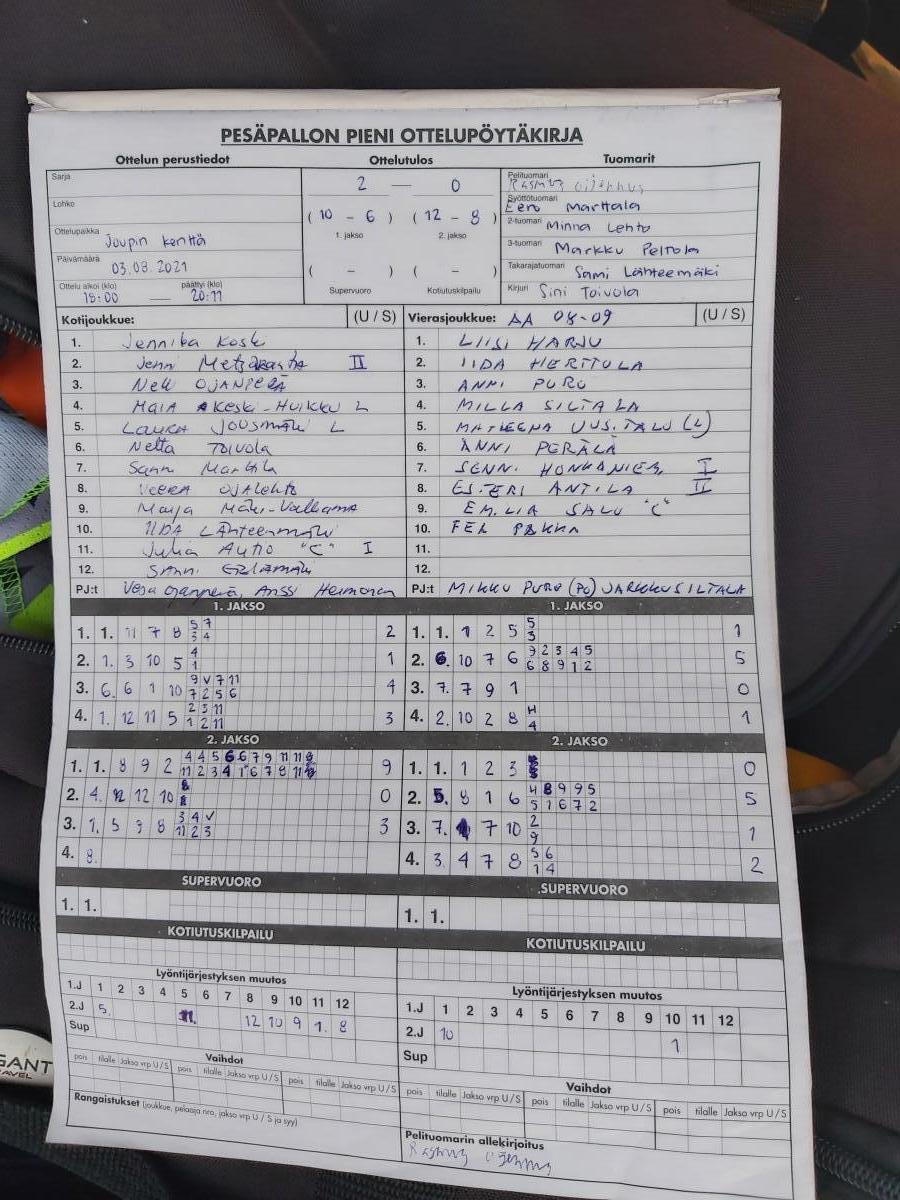 PESÄPALLON PIENI OTTELUPÖYTÄKIRJA
Ottelun perustiedot
Sarja
Lohko
Ottelupaikka Joupin kenttä
Päivämäärä 03.08.2021
Ottelu alkoi (klo) päättyi (klo)
18:00 — 20:11
Ottelutulos
2 — 0
( 10 - 6 ) ( 12 - 8 )
1. jakso 2. jakso
( - ) ( - )
Supervuoro Kotiutuskilpailu
Tuomarit
Pelituomari Rasmus
Syöttötuomari Eero Marttala
2-tuomari Minna Lehto
3-tuomari Markku Peltola
Takarajatuomari Sami Lähteemäki
Kirjuri Sini Toivola
Kotijoukkue: (U / S)
1. Jennika Koski
2. Jenni II
3. Neli OJANPERÄ
4. MAIA KESKI-HUIKKU L
5. LAURA JOUSMÄKI L
6. Netta TOIVOLA
7. Sanni Marttila
8. VEERA OJALEHTO
9. Maija Mäki-Valkama
10. IIDA LÄHTEENMÄKI
11. Julia Autio "C" I
12. SANNI
PJ:t Vesa Ojanperä, Anssi Hermonen
Vierasjoukkue: AA 08-09 (U / S)
1. LIISI HARJU
2. IIDA HERTTULA
3. ANNI PURO
4. MILLA SILTALA
5. MATLEENA UUSITALO (L)
6. ANNI PERÄLÄ
7. SENNI HONKANIEMI I
8. ESTERI ANTILA II
9. EMILIA SALO "C"
10. PAKKA
11.
12.
PJ:t MIKKO PURO (PJ) JARKKO SILTALA
1. JAKSO
1. 1. 11 7 8 5 7 2
3 4
2. 1. 3 10 5 4 1
1
3. 6. 6 1 10 9 V 7 11 4
7 2 5 6
4. 1. 12 11 5 2 3 11 3
1 2 11
1. JAKSO
1. 1. 1 2 5 5 1
3
2. 6. 10 7 6 9 2 3 4 5 5
6 8 9 1 2
3. 7. 7 9 1 0
4. 2. 10 2 8 H 1
4
2. JAKSO
1. 1. 8 9 2 4 4 5 6 6 7 9 11 11 9
11 2 3 4 1 6 7 8 11
2. 4. 12 12 10 0
3. 1. 5 9 8 3 4 V 3
11 2 3
4. 8.
2. JAKSO
1. 1. 1 2 3 0
2. 5. 8 1 6 4 8 9 9 5 5
5 1 6 7 2
3. 7. 7 10 2 1
9
4. 3. 4 7 8 5 6 2
1 4
SUPERVUORO
1. 1.
SUPERVUORO
1. 1.
KOTIUTUSKILPAILU
KOTIUTUSKILPAILU
Lyöntijärjestyksen muutos
1.J 1 2 3 4 5 6 7 8 9 10 11 12
2.J 5. 11. 12 10 9 1. 8
Sup
Lyöntijärjestyksen muutos
1.J 1 2 3 4 5 6 7 8 9 10 11 12
2.J 10 1
Sup
Vaihdot
pois tilalle Jakso vrp U / S pois tilalle Jakso vrp U / S pois tilalle Jakso vrp U / S
Rangaistukset (joukkue, pelaaja nro, jakso vrp U / S ja syy)
Vaihdot
pois tilalle Jakso vrp U / S pois tilalle Jakso vrp U / S pois tilalle Jakso vrp U / S
Pelituomarin allekirjoitus
Rasmus